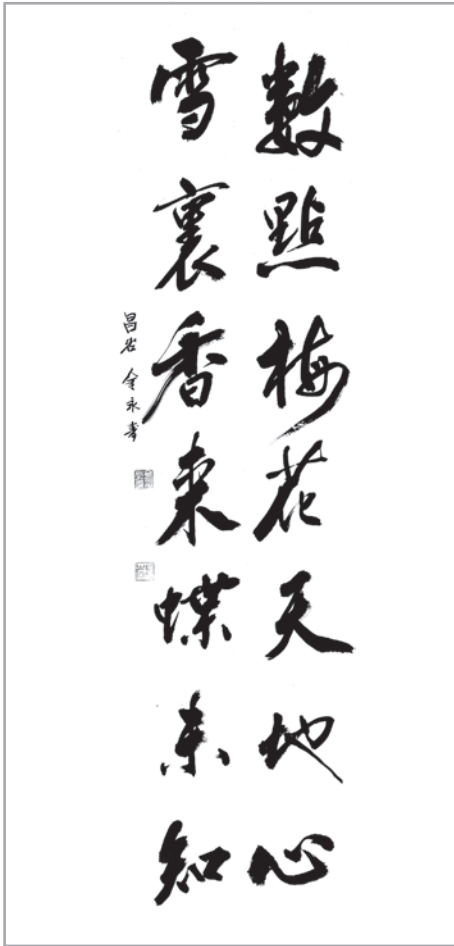 數點梅花天地心
雪裏香來蝶未知
昌谷 金永孝